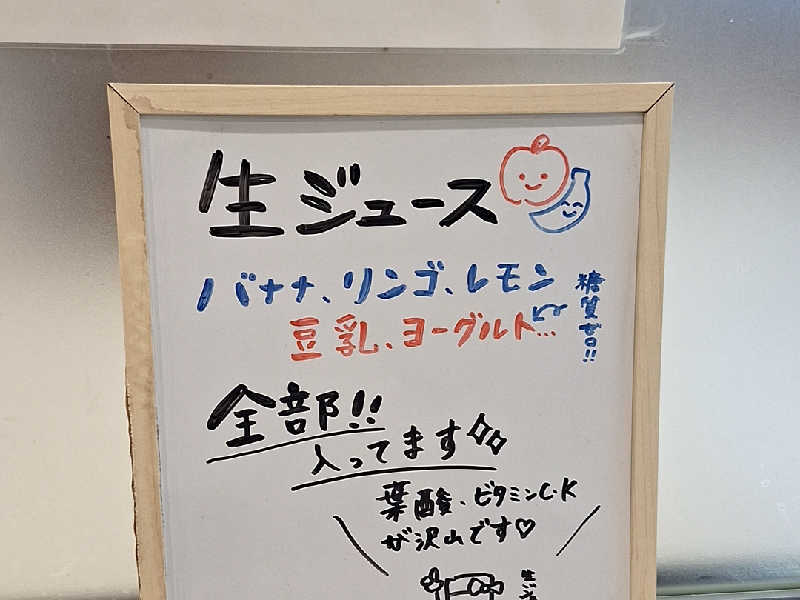 生ジュース
バナナ、リンゴ、レモン
豆乳、ヨーグルト...
糖質ゼロ!!
全部!!
入ってます
葉酸、ビタミンC・K
が沢山です♡